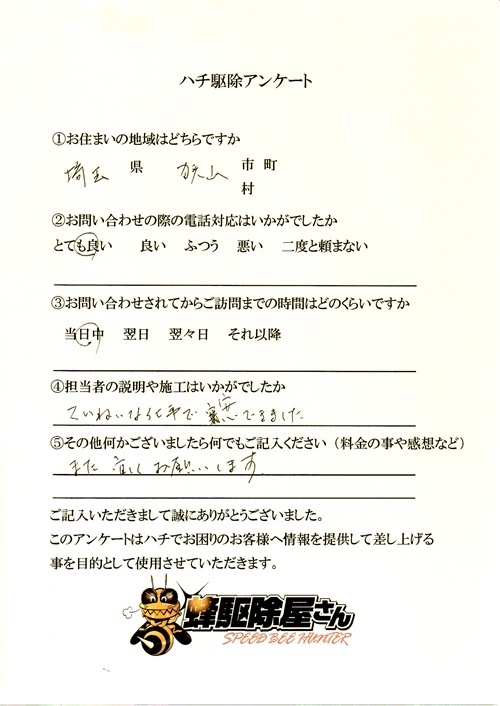 ハチ駆除アンケート
①お住まいの地域はどちらですか
埼玉 県 狭山 市 町
村
②お問い合わせの際の電話対応はいかがでしたか
とても良い 良い ふつう 悪い 二度と頼まない
③お問い合わせされてからご訪問までの時間はどのくらいですか
当日中 翌日 翌々日 それ以降
④担当者の説明や施工はいかがでしたか
ていねいな仕事で 安心できました
⑤その他何かございましたら何でもご記入ください（料金の事や感想など）
また 宜しくお願いします
ご記入いただきまして誠にありがとうございました。
このアンケートはハチでお困りのお客様へ情報を提供して差し上げる
事を目的として使用させていただきます。
蜂駆除屋さん
SPEED BEE HUNTER